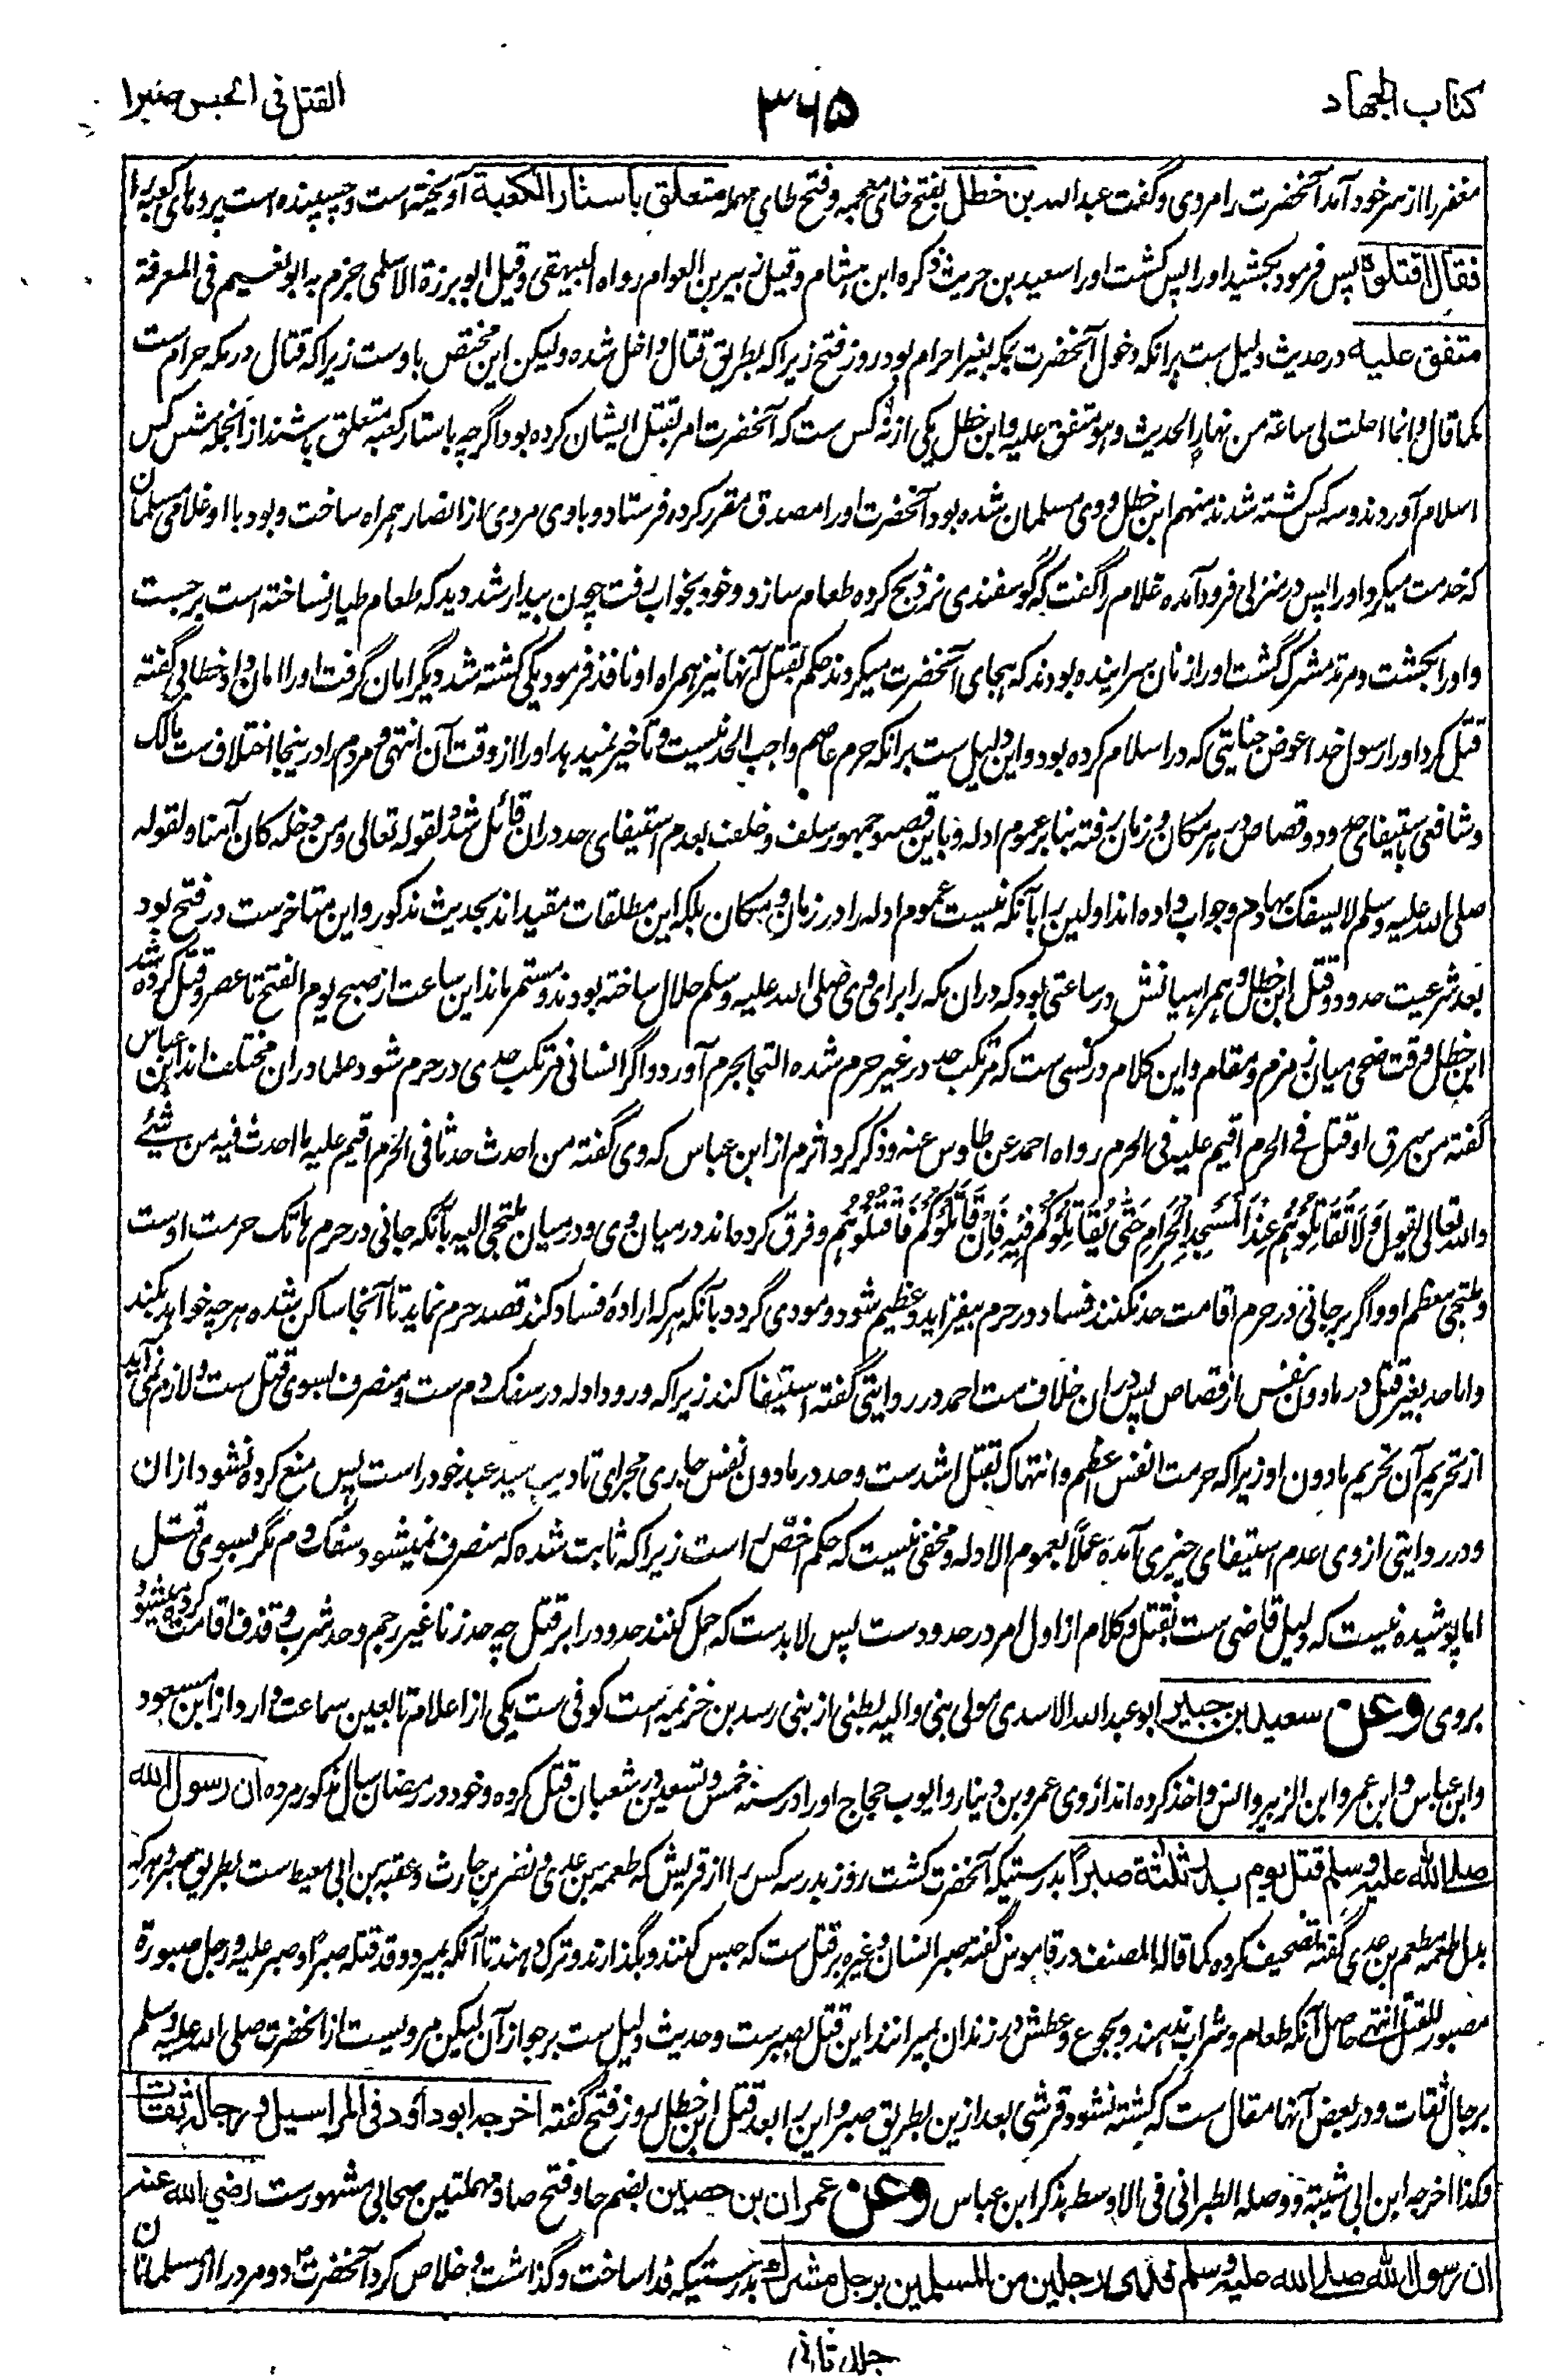 کتاب الجهاد
۳۶۵
القتل فی الحبس صبرا
مغفر را از سر خود آمد آنحضرت را مردی و گفت عبد الله بن خطل بفتح خای معجمه و فتح طای مهمله متعلق باستار الکعبة آویخته است و چسپیده است پردهای کعبه را
فقال اقتلوه پس فرمود بکشید او را پس کشت او را سعید بن حریث ذکره ابن هشام و قیل زبیر بن العوام رواه البیهقی و قیل ابو برزة الاسلمی جزم به ابو نعیم فی المعرفة
متفق علیه در حدیث دلیل ست برانکه دخول آنحضرت بمکه بغیر احرام بود روز فتح زیراکه بطریق قتال داخل شده ولیکن این مختص باوست زیراکه قتال در مکه حرام ست
کما قال وانما احلت لی ساعة من نهار الحدیث وهو متفق علیه و ابن خطل یکی از نه کس ست که آنحضرت امر بقتل ایشان کرده بود اگرچه باستار کعبه متعلق باشند از انجمله شش کس
اسلام آوردند و سه کس کشته شدند منهم ابن خطل و وی مسلمان شده بود آنحضرت او را مصدق مقرر کرده فرستاد و با وی مردی از انصار همراه ساخت و بود با او غلامی مسلمان
که خدمت میکرد او را پس در منزلی فرود آمده غلام را گفت که گوسفندی نر ذبح کرده طعام سازد و خود بخواب رفت چون بیدار شد دید که طعام طیار نساخته است برجست
و او را بکشت و مرتد مشرک گشت و او را زنان سراینده بودند که هجای آنحضرت میکردند حکم بقتل آنها نیز همراه او نافذ فرمود یکی کشته شد دیگر امان گرفت او را امان داد خطابی گفته
قتل کرد او را رسول خدا عوض جنایتی که در اسلام کرده بود و این دلیل ست برانکه حرم عاصم واجب الحد نیست و تاخیر نمیدهد او را از وقت آن انتهی و مردم را درینجا اختلاف ست مالک
و شافعی باستیفای حدود و قصاص در هر مکان و زمان رفته بنا بر عموم ادله و باین قصه و جمهور سلف و خلف بعدم استیفای حد دران قائل شده لقوله تعالی ومن دخله کان آمنا ولقوله
صلی الله علیه وسلم لا یسفک بها دم و جواب داده اند اولین را بآنکه نیست عموم ادله را در زمان و مکان بلکه این مطلقات مقید اند بحدیث مذکور و این متاخرست در فتح بود
بعد شرعیت حدود و قتل ابن خطل و همراهیانش در ساعتی بود که دران مکه را برای وی صلی الله علیه وسلم حلال ساخته بودند و مستمر ماند این ساعت از صبح یوم الفتح تا عصر و قتل کرده شد
ابن خطل وقت ضحی میان زمزم و مقام و این کلام در کسی ست که مرتکب حد در غیر حرم شده التجا بحرم آورد و اگر انسانی مرتکب حدی در حرم شود علما دران مختلف اند ابن عباس
گفته من سرق او قتل فی الحرم اقیم علیه فی الحرم رواه احمد عن طاوس عنه و ذکر کرد اثرم از ابن عباس که وی گفته من احدث حدثا فی الحرم اقیم علیه ما احدث فیه من شیٔ
والله تعالی یقول وَلَا تُقَاتِلُوهُمْ عِنْدَ الْمَسْجِدِ الْحَرَامِ حَتّٰی یُقَاتِلُوکُمْ فِیهِ فَاِنْ قَاتَلُوکُمْ فَاقْتُلُوهُمْ و فرق کرده اند در میان وی و در میان ملتجی الیه بآنکه جانی در حرم هاتک حرمت اوست
و ملتجی معظم او و اگر بر جانی در حرم اقامت حد نکنند فساد در حرم بیفزاید و عظیم شود و مودی گردد بآنکه هر که ارادهٔ فساد کند قصد حرم نماید تا آنجا ساکن شده هرچه خواهد بکند
و اما حد بغیر قتل در مادون نفس از قصاص پس دران خلاف ست احمد در روایتی گفته استیفا کنند زیراکه ورود ادله در سفک دم ست و منصرف بسوی قتل ست و لازم نمی آید
از تحریم آن تحریم مادون او زیراکه حرمت نفس اعظم و انتهاک بقتل اشدست و حد در مادون نفس جاری مجرای تادیب سید عبد خود را است پس منع کرده نشود ازان
و در روایتی از وی عدم استیفای چیزی آمده عملاً بعموم الادله و مخفی نیست که حکم اخصّ را است زیراکه ثابت شده که منصرف نمیشود سفک دم مگر بسوی قتل
اما پوشیده نیست که دلیل قاضی ست بقتل و کلام از اول امر در حدودست پس لابدست که حمل کنند حدود را بر قتل چه حد زنا غیر رجم و حد شرب و قذف اقامت کرده میشود
بروی وعن سعید بن جبیر ابو عبد الله الاسدی مولی بنی والبه بطنی از بنی رسد بن خزیمه است کوفی ست یکی از اعلام تابعین سماعت دارد از ابن مسعود
و ابن عباس و ابن عمر و ابن الزبیر و انس و اخذ کرده اند از وی عمرو بن دینار و ایوب حجاج او را در سنه خمس و تسعین در شعبان قتل کرده و خود در رمضان سال مذکور مرده ان رسول الله
صلے الله علیه وسلم قتل یوم بدر ثلثة صبراً بدرستیکه آنحضرت کشت روز بدر سه کس را از قریش که طعمه بن عدی و نضر بن حارث و عقبه بن ابی معیط ست بطریق صبر و هر که
بدل طعمه مطعم بن عدی گفته تصحیف کرده کما قاله المصنف در قاموس گفته صبر انسان و غیره بر قتل ست که حبس کنند و بگذارند و ترک دهند تا آنکه بمیرد و قد قتله صبرًا وصبر علیه ورجل صبورة
مصبور للقتل انتهی حاصل آنکه طعام و شراب ندهند و بجوع و عطش در زندان بمیرانند این قتل بصبرست و حدیث دلیل ست بر جواز آن لیکن مرویست از آنحضرت صلی الله علیه وسلم
برجال ثقات و در بعض آنها مقال ست که کشته نشود قرشی بعد ازین بطریق صبر و این را بعد قتل ابن خطل روز فتح گفته اخرجه ابو داؤد فی المراسیل ورجاله ثقات
وکذا اخرجه ابن ابی شیبة ووصله الطبرانی فی الاوسط بذکر ابن عباس وعن عمران بن حصین بضم حا و فتح صاد مهملتین صحابی مشهورست رضی الله عنه
ان رسول الله صلے الله علیه وسلم فدی رجلین من المسلمین برجل مشرك بدرستیکه فدا ساخت و گذاشت و خلاص کرد آنحضرت دو مرد را از مسلمانان
جلد ثانی